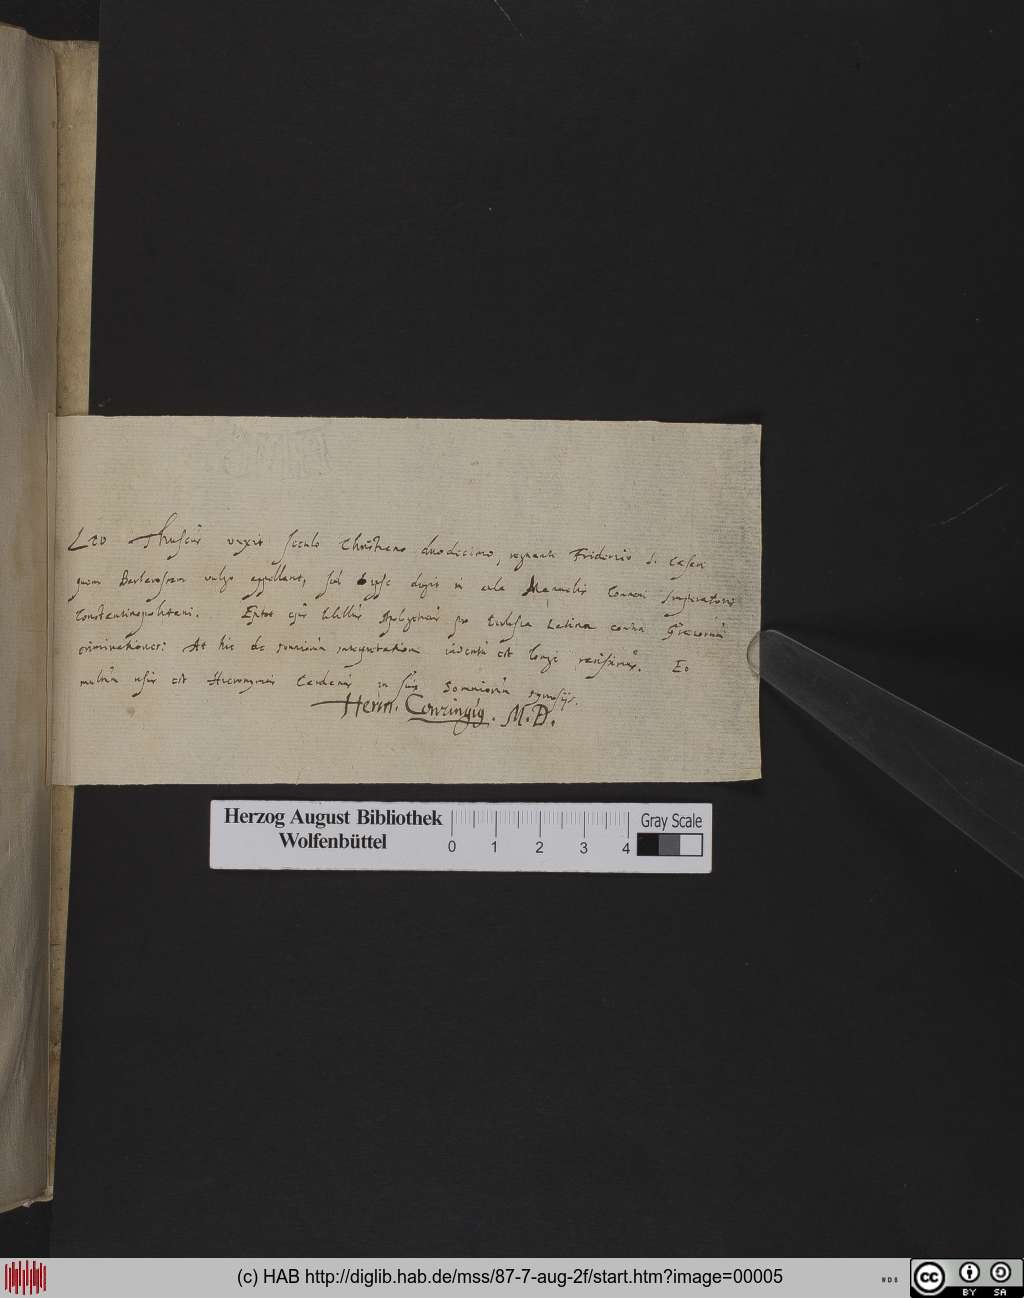 Leo Thuscus vixit seculo Christiano duodecimo, regnante Friderico I. Caesari
quem Barbarossam vulgo appellant, sub ipse degit in aula Manuelis Comneni Imperatoris
Constantinopolitani. Extat ejus libellus Apologeticus pro Ecclesia Latina contra Graecorum
criminationes: At hic de somnium interpretatione est longe rarissimus. Eo
multum usus est Hieronymus Cardanus in suis Somniorum synesijs.
Herm. Conringius. M. D.
Herzog August Bibliothek
Wolfenbüttel
0 1 2 3 4
Gray Scale
(c) HAB http://diglib.hab.de/mss/87-7-aug-2f/start.htm?image=00005
WDB
cc BY SA